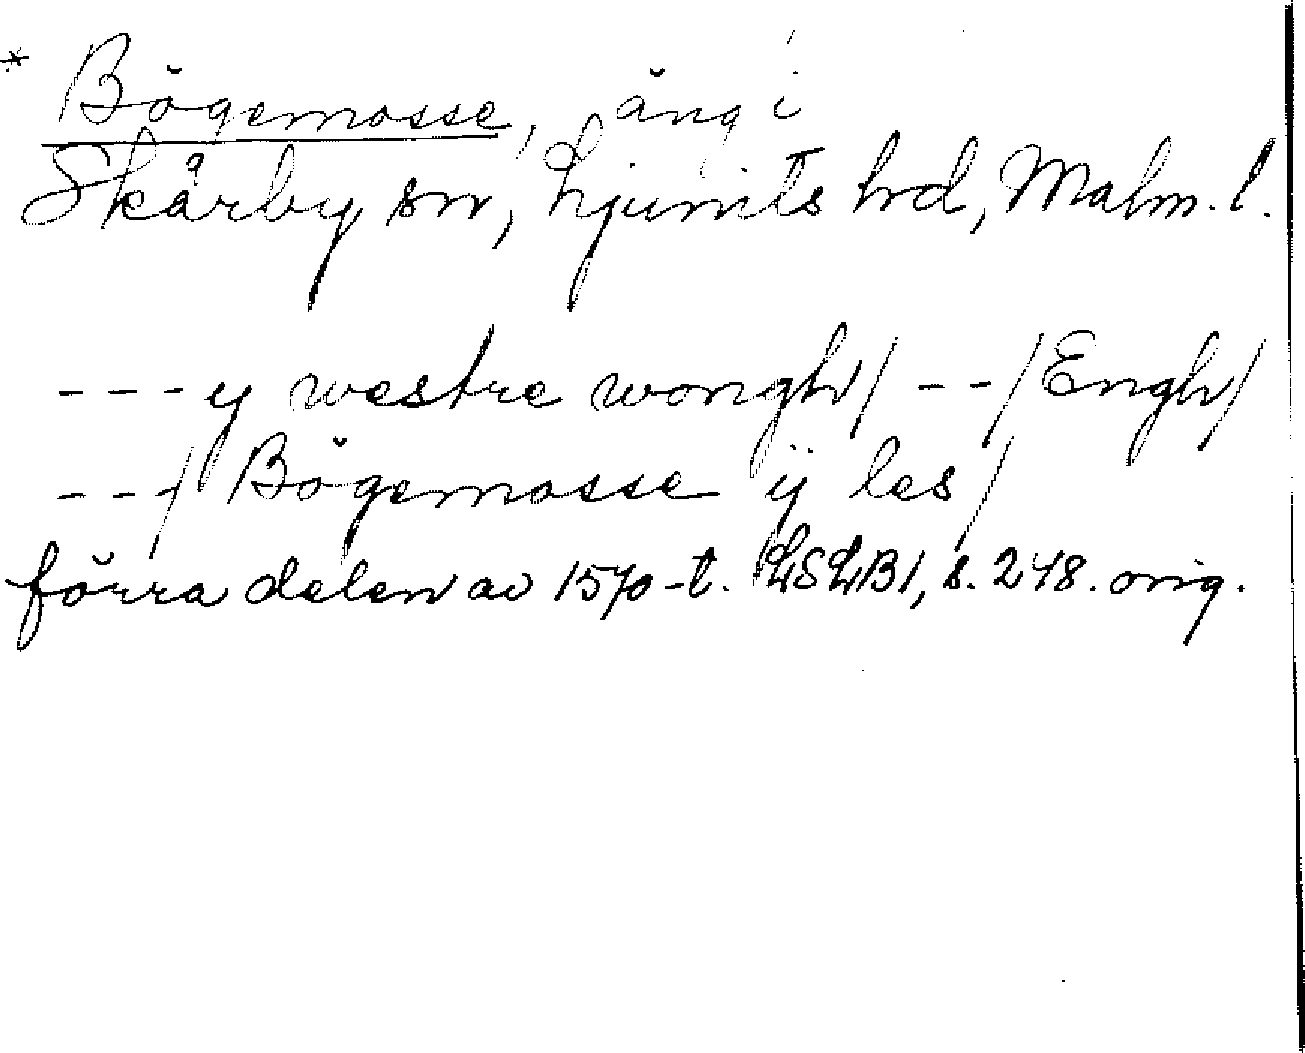 * Bögemosse, äng i
Skårby sn, Ljunits hd, Malm. l.
- - - y westre wongh/ - - /Engh/
- - -/ Bögemosse ÿ les/
förra delen av 1570-t. LSLB1, s. 248. orig.